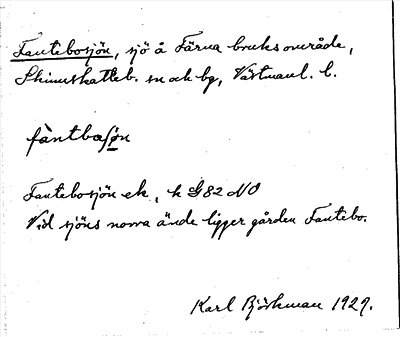 Fantebosjön, sjö å Färna bruksområde,
Skinnskatteb. sn och bg, Västmanl. l.
fàntbasjøn
Fantebosjön ek, h G82 NO
Vid sjöns norra ände ligger gården Fantebo.
Karl Björkman 1929.